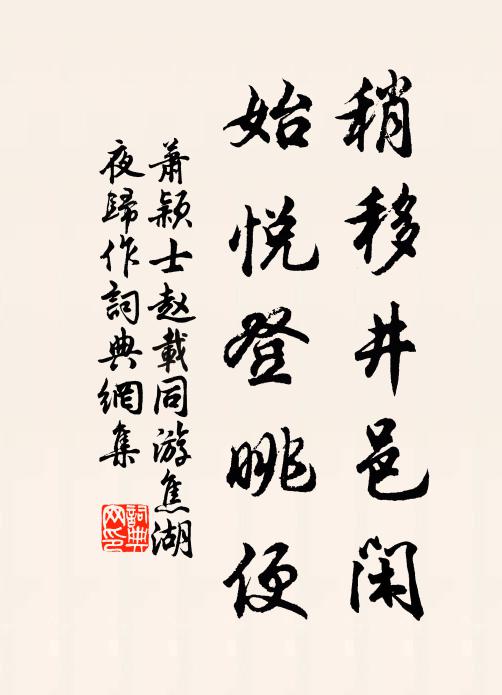 稍移井邑闲
始悦登眺便
萧颖士赵载同游焦湖
夜歸作詞典網集
詞典
网印